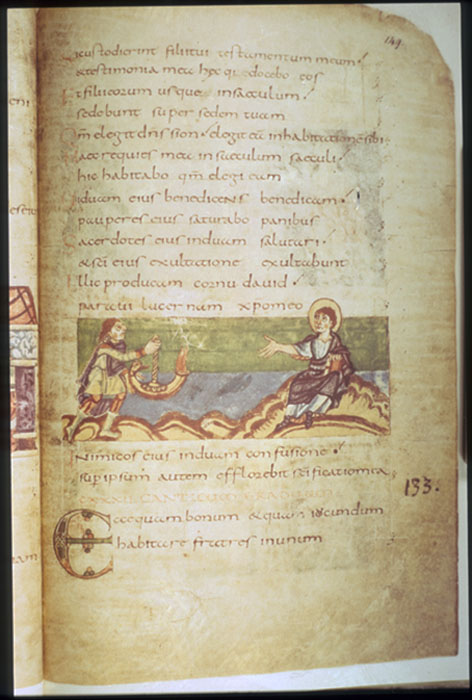 149.
Si custodierint filii tui testamentum meum
& testimonia mea hęc quę docebo eos
& filii eorum usque in sæculum
sedebunt super sedem tuam
Qm̄ elegit dn̄s sion elegit eā in habitationē sibi
Haec requies mea in sæculum sæculi
hic habitabo qm̄ elegi eam
Viduam eius benedicens benedicam
pauperes eius saturabo panibus
Sacerdotes eius induam salutari
& sc̄i eius exultatione exultabunt
Illic producam cornu david
paravi lucernam xp̄o meo
Inimicos eius induam confusione
sup ipsum autem efflorebit sc̄ificatio mea
CANTICUM GRADUUM
133.
Ecce quam bonum & quam iocundum
habitare fratres in unum